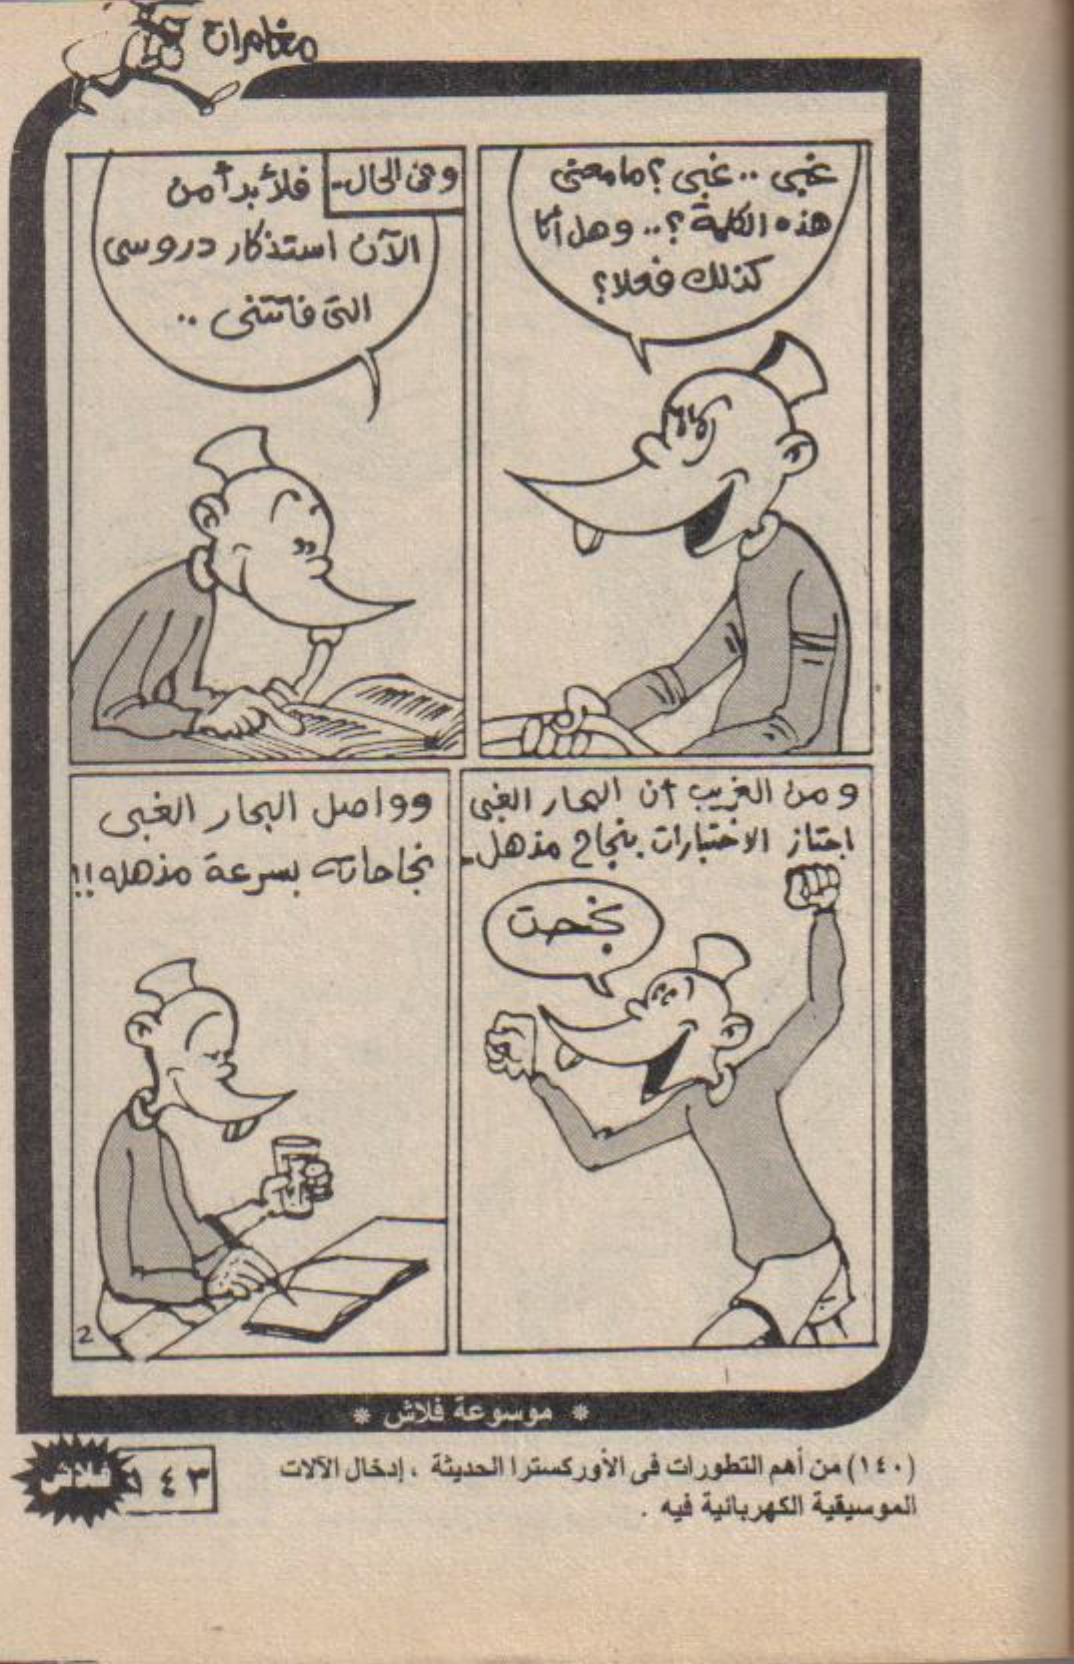 مغامرات
غبى .. غبى ؟ ما معنى
هذه الكلمة ؟ .. وهل أنا
كذلك فعلا ؟
وفى الحال ..
فلأبدأ من
الآن استذكار دروسى
التى فاتتنى ..
ومن الغريب أن البحار الغبى
اجتاز الاختبارات بنجاح مذهل ..
نجحت
وواصل البحار الغبى
نجاحاته بسرعة مذهله !!
2
* موسوعة فلاش *
(١٤٠) من أهم التطورات فى الأوركسترا الحديثة ، إدخال الآلات
الموسيقية الكهربائية فيه .
١٤٣
فلاش